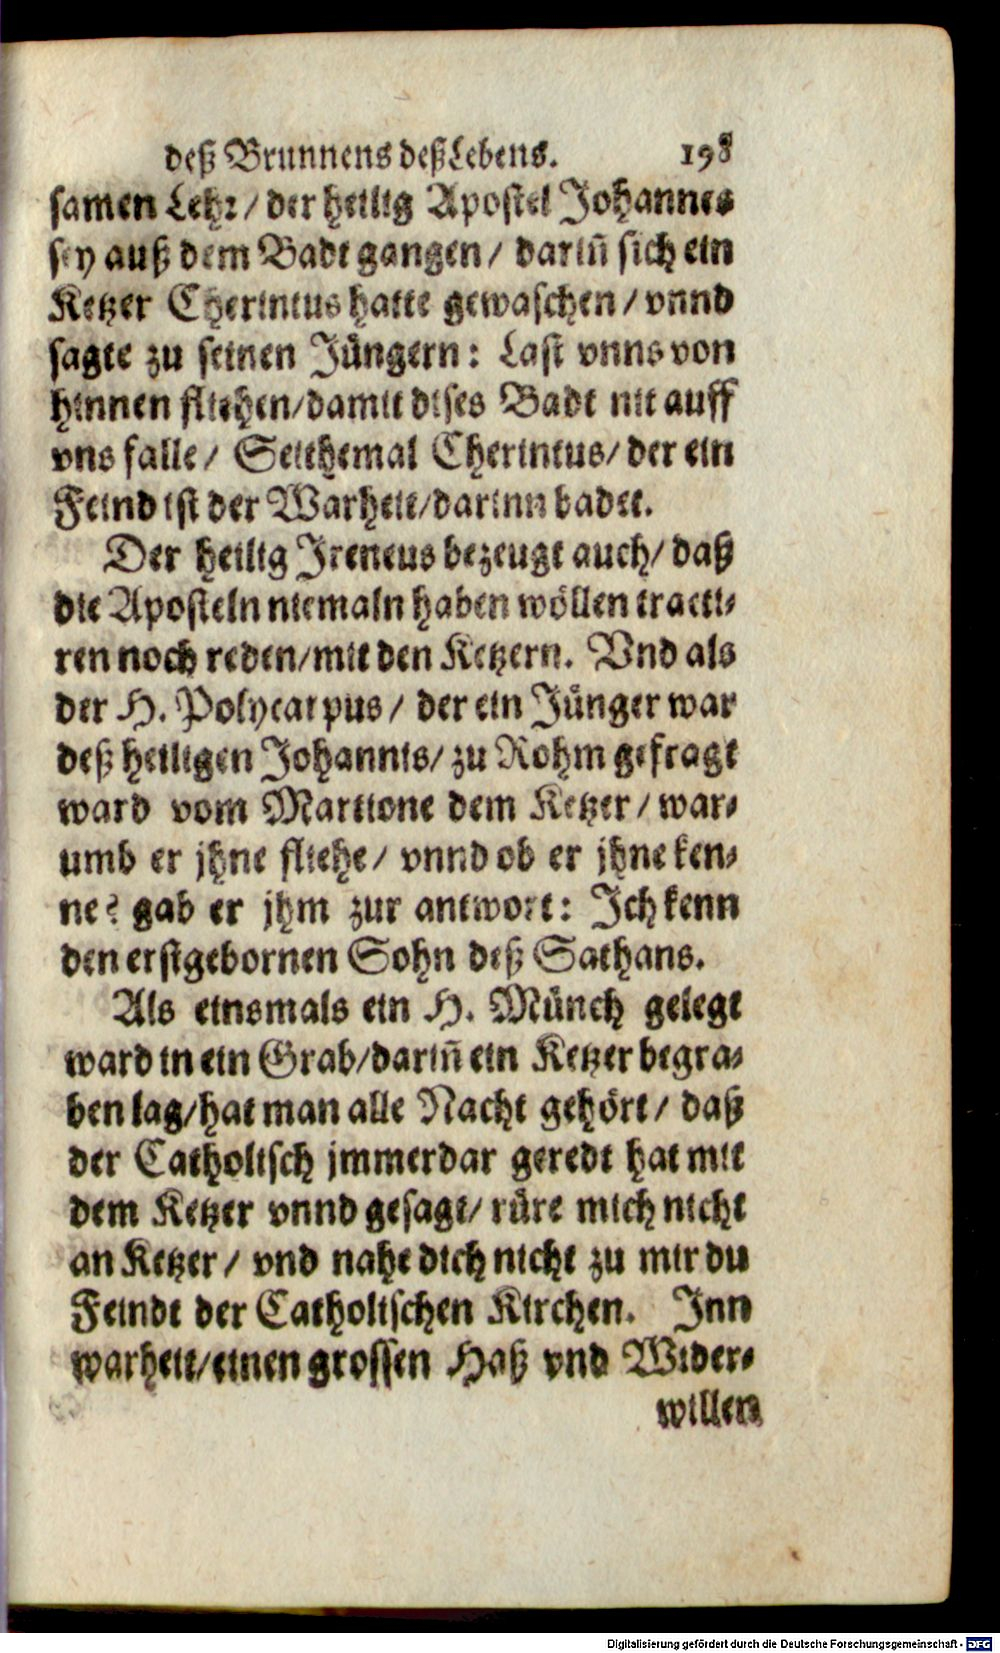 deß Brunnens deß Lebens. 198
samen Lehr/ der heilig Apostel Johannes
sey auß dem Badt gangen/ dariñ sich ein
Ketzer Cherintus hatte gewaschen/ vnnd
sagte zu seinen Jüngern: Last vnns von
hinnen fliehen/damit dises Badt nit auff
vns falle/ Seithemal Cherintus/ der ein
Feind ist der Warheit/darinn badet.
Der heilig Jreneus bezeugt auch/ daß
die Aposteln niemaln haben wöllen tracti-
ren noch reden/mit den Ketzern. Vnd als
der H. Polycarpus/ der ein Jünger war
deß heiligen Johannis/ zu Rohm gefragt
ward vom Martione dem Ketzer/ war-
umb er jhne fliehe/ vnnd ob er jhne ken-
ne? gab er jhm zur antwort: Jch kenn
den erstgebornen Sohn deß Sathans.
Als einsmals ein H. Münch gelegt
ward in ein Grab/dariñ ein Ketzer begra-
ben lag/hat man alle Nacht gehört/ daß
der Catholisch jmmerdar geredt hat mit
dem Ketzer vnnd gesagt/ rüre mich nicht
an Ketzer/ vnd nahe dich nicht zu mir du
Feindt der Catholischen Kirchen. Jnn
warheit/einen grossen Haß vnd Wider-
willen
Digitalisierung gefördert durch die Deutsche Forschungsgemeinschaft - DFG